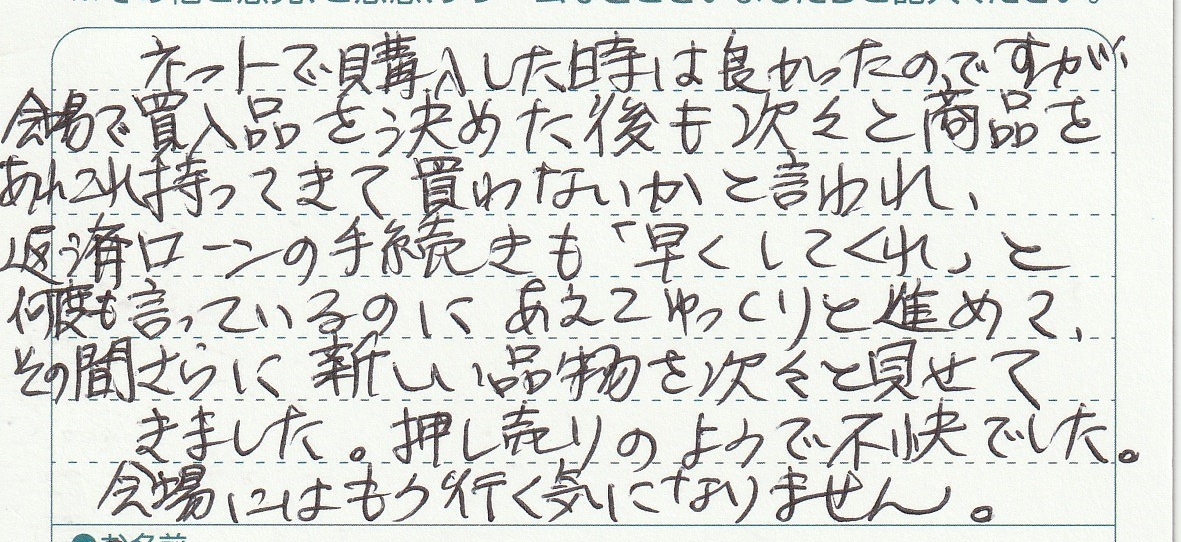 ネットで購入した時は良かったのですが、
会場で買入品を決めた後も次々と商品を
あれこれ持ってきて買わないかと言われ、
返済ローンの手続きも「早くしてくれ」と
何度も言っているのにあえてゆっくりと進めて、
その間さらに新しい品物を次々と見せて
きました。押し売りのようで不快でした。
会場にはもう行く気になりません。
●お名前